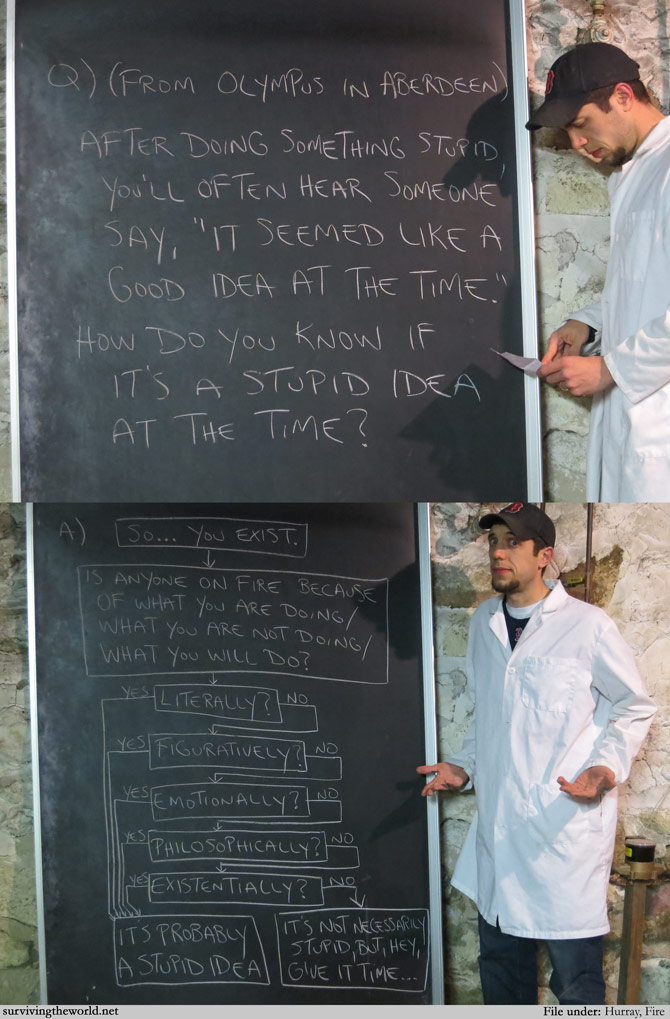 Q) (FROM OLYMPUS IN ABERDEEN)
AFTER DOING SOMETHING STUPID,
YOU'LL OFTEN HEAR SOMEONE
SAY, "IT SEEMED LIKE A
GOOD IDEA AT THE TIME."
HOW DO YOU KNOW IF
IT'S A STUPID IDEA
AT THE TIME?
A) SO... YOU EXIST.
IS ANYONE ON FIRE BECAUSE
OF WHAT YOU ARE DOING/
WHAT YOU ARE NOT DOING/
WHAT YOU WILL DO?
YES LITERALLY? NO
YES FIGURATIVELY? NO
YES EMOTIONALLY? NO
YES PHILOSOPHICALLY? NO
YES EXISTENTIALLY? NO
IT'S PROBABLY
A STUPID IDEA
IT'S NOT NECESSARILY
STUPID, BUT, HEY,
GIVE IT TIME...
survivingtheworld.net
File under: Hurray, Fire